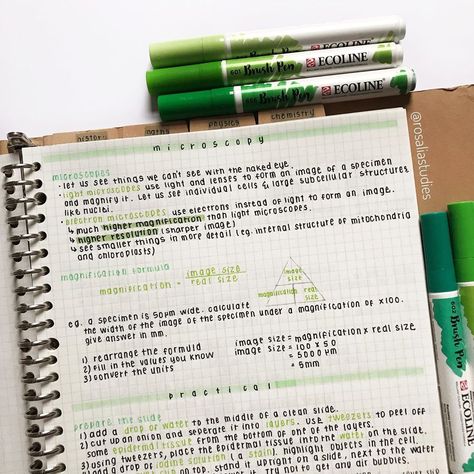 ECOLINE
601 Brush Pen ECOLINE
Brush Pen ECOLINE
history
maths
physics
chemistry
@rosaliastudies
microscopy
microscopes
· let us see things we can't see with the naked eye.
· light microscopes use light and lenses to form an image of a specimen
and magnify it. Let us see individual cells & large subcellular structures
like nuclei.
· electron microscopes use electrons instead of light to form an image.
↳ much higher magnification than light microscopes.
↳ higher resolution (sharper image)
↳ see smaller things in more detail (eg. internal structure of mitochondria
and chloroplasts)
magnification formula
magnification = image size
real size
image
size
magnification real
size
eg. a specimen is 50µm wide. calculate
the width of the image of the specimen under a magnification of x100.
give answer in mm.
1) rearrange the formula image size = magnification x real size
2) fill in the values you know image size = 100 x 50
3) convert the units = 5000µm
= 5mm
practical
prepare the slide
1) add a drop of water to the middle of a clean slide.
2) cut up an onion and seperate it into layers. use tweezers to peel off
some epidermal tissue from the bottom of one of the layers.
3) using tweezers, place the epidermal tissue into the water on the slide.
4) add a drop of iodine solution (a stain). highlight objects in the cell.
on top. stand it upright on a slide, next to the water
try not to get any air bubbles.
Brush Pen
ECOLINE